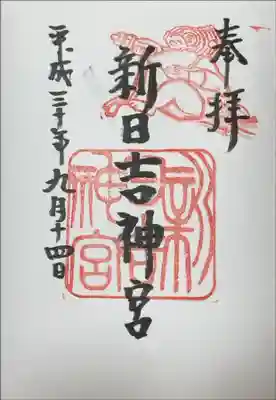 奉拝
新日吉神宮
平成三十年九月十四日